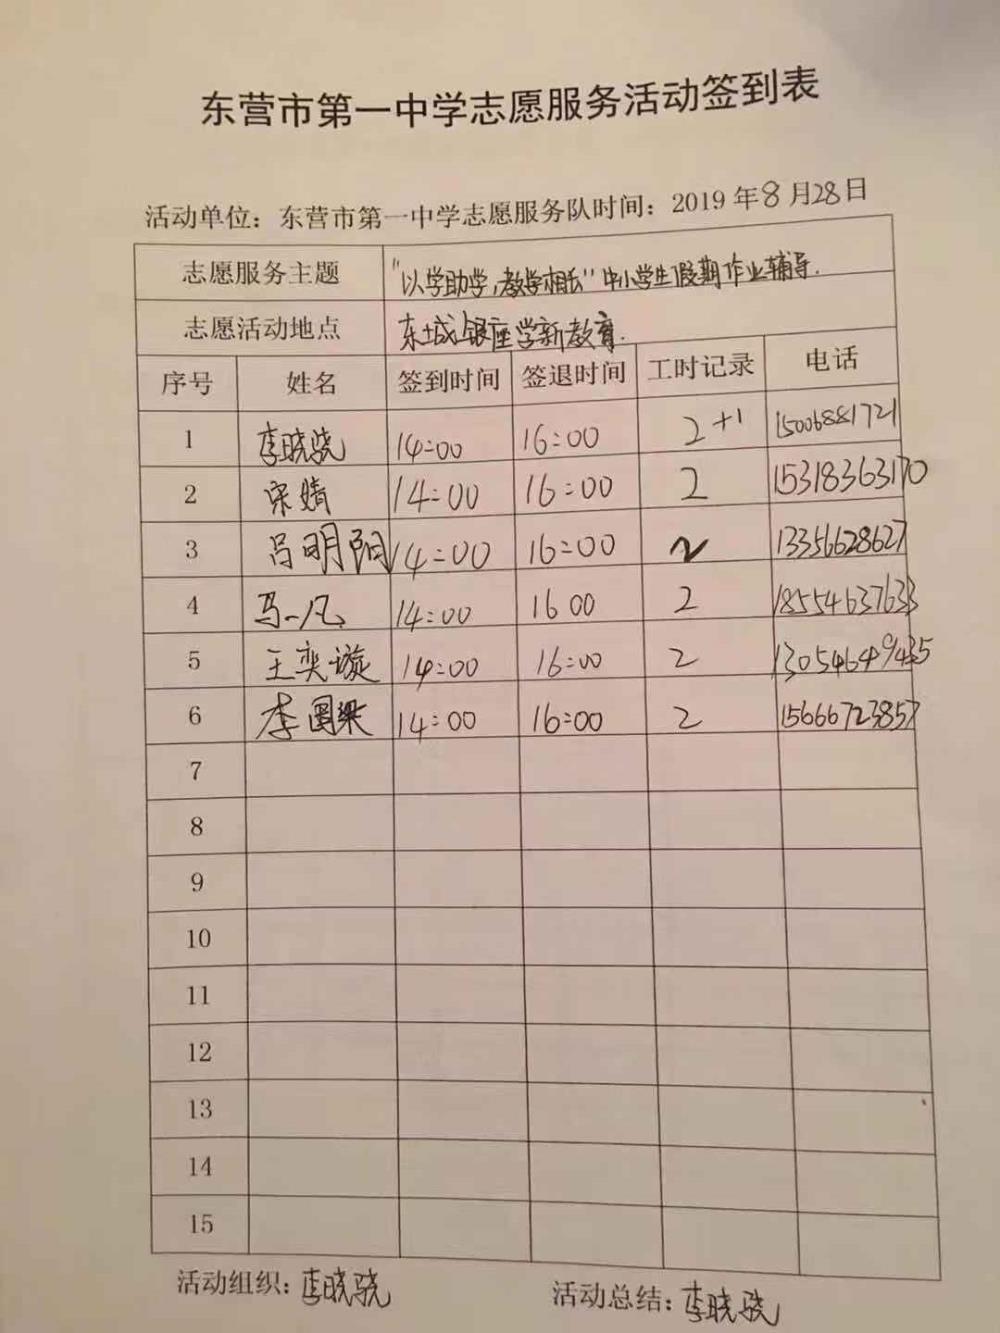 东营市第一中学志愿服务活动签到表
活动单位：东营市第一中学志愿服务队时间：2019 年8月28日
志愿服务主题 "以学助学，教学相长"中小学生假期作业辅导.
志愿活动地点 东城银座学新教育.
序号 姓名 签到时间 签退时间 工时记录 电话
1 李晓骁 14:00 16:00 2+1 15006881721
2 宋婧 14:00 16:00 2 15318363170
3 吕明阳 14:00 16:00 2 13356628627
4 马一凡 14:00 16 00 2 18554637633
5 王奕璇 14:00 16:00 2
6 李 14:00 16:00 2 15666723857
7
8
9
10
11
12
13
14
15
活动组织：李晓骁 活动总结：李晓骁